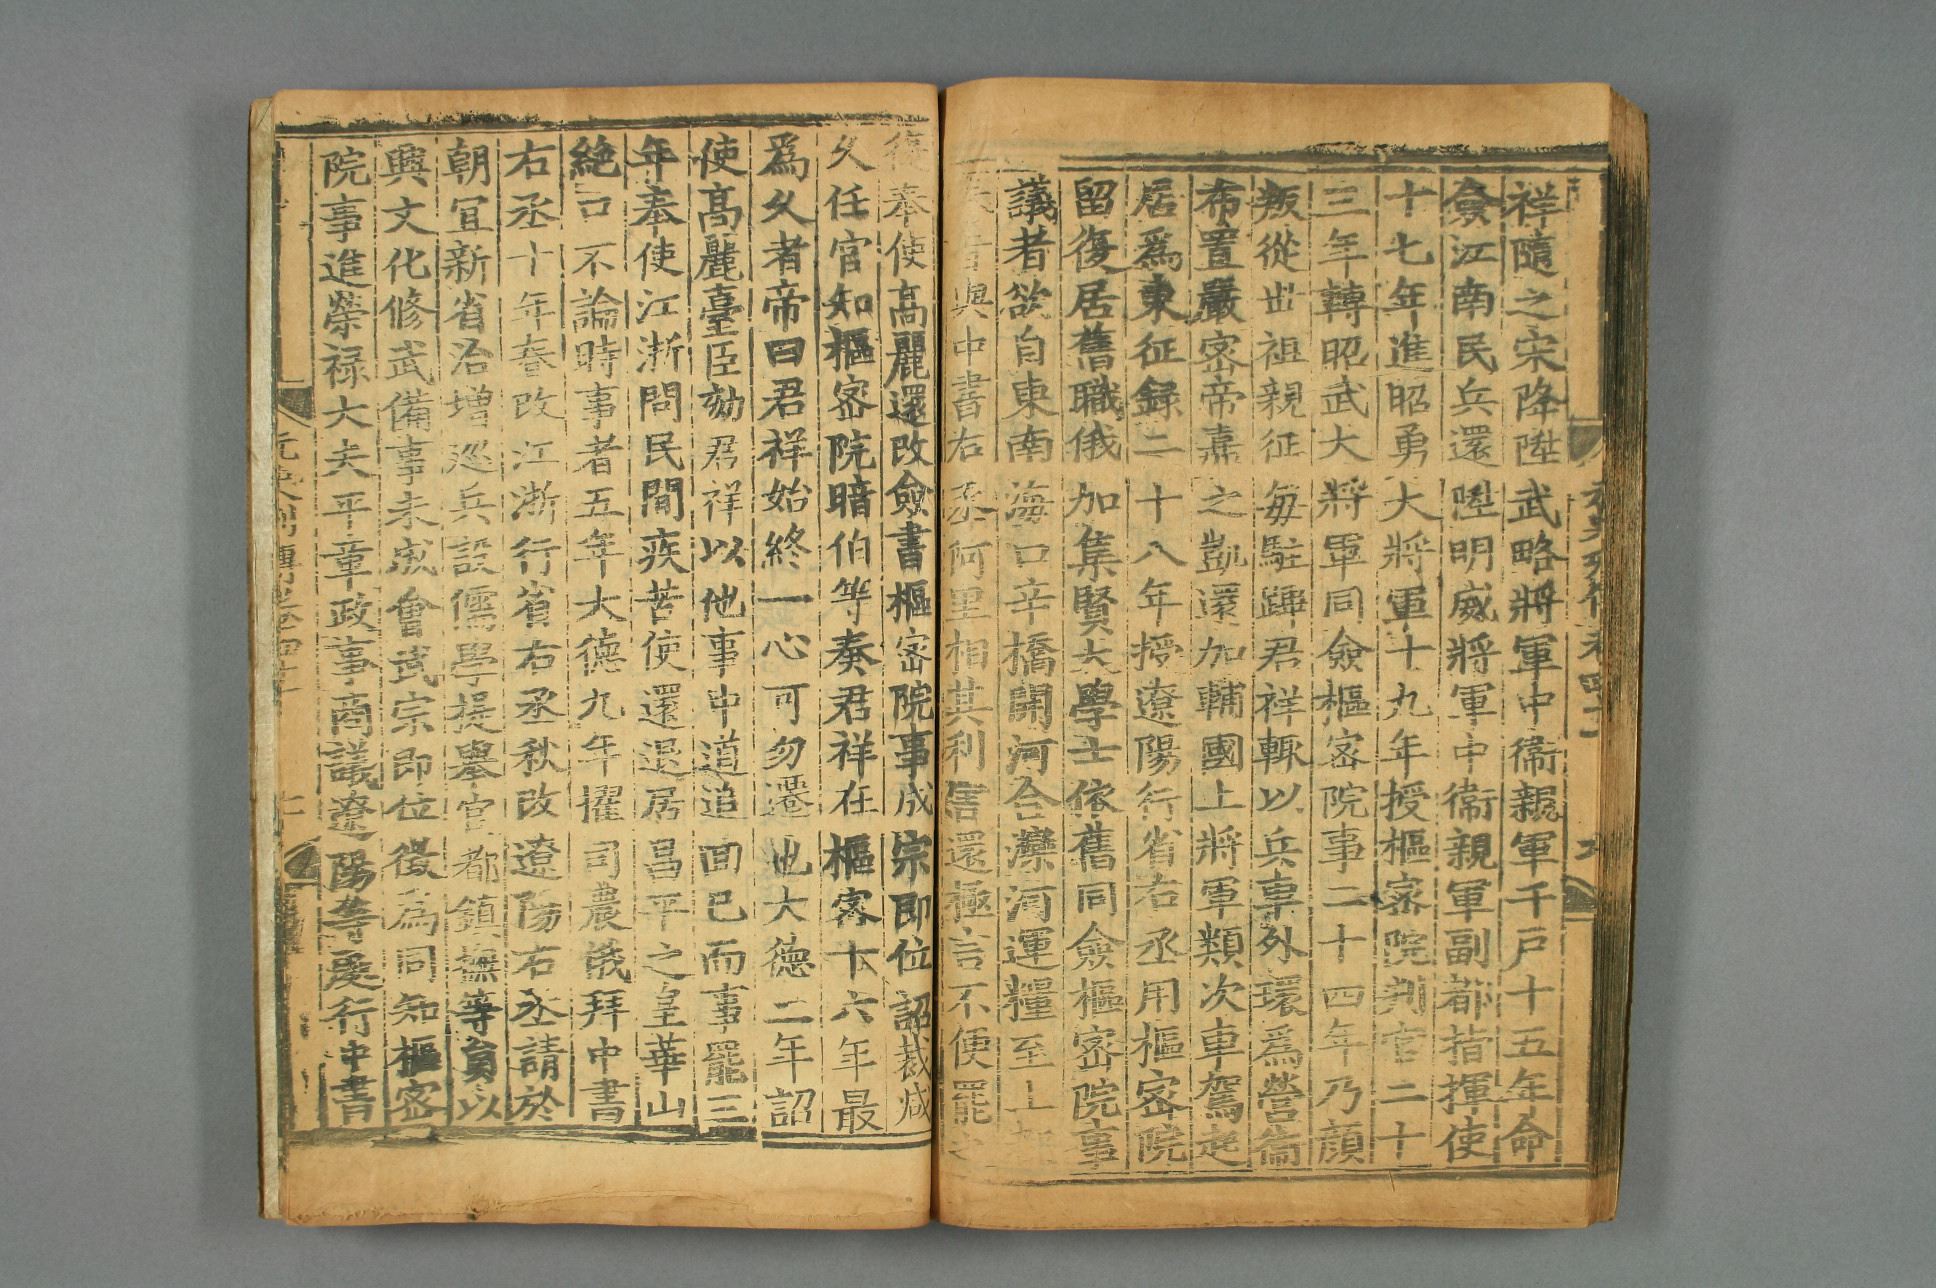 祥隨之宋降陞武略將軍中衞親軍千戶十五年命
僉江南民兵還陞明威將軍中衞親軍副都指揮使
十七年進昭勇大將軍十九年授樞密院判官二十
三年轉昭武大將軍同僉樞密院事二十四年乃顏
叛從世祖親征每駐蹕君祥輒以兵車外環爲營衞
布置嚴密帝嘉之凱還加輔國上將軍類次車駕起
居爲東征録二十八年授遼陽行省右丞用樞密院
留復居舊職俄加集賢大學士依舊同僉樞密院事
議者欲自東南海口辛橋開河合灤河運糧至上都
與中書右丞阿里相其利害還極言不便罷之
復奉使高麗還改僉書樞密院事成宗即位詔裁減
久任官知樞密院暗伯等奏君祥在樞密十六年最
爲久者帝曰君祥始終一心可勿遷也大德二年詔
使高麗臺臣劾君祥以他事中道追回已而事罷三
年奉使江浙問民間疾苦使還退居昌平之皇華山
絶口不論時事者五年大德九年擢司農俄拜中書
右丞十年春改江浙行省右丞秋改遼陽右丞請於
朝宜新省治增巡兵設儒學提舉官都鎮撫等員以
興文化修武備事未成會武宗即位徵爲同知樞密
院事進榮禄大夫平章政事商議遼陽等處行中書
元史列傳卷四十一